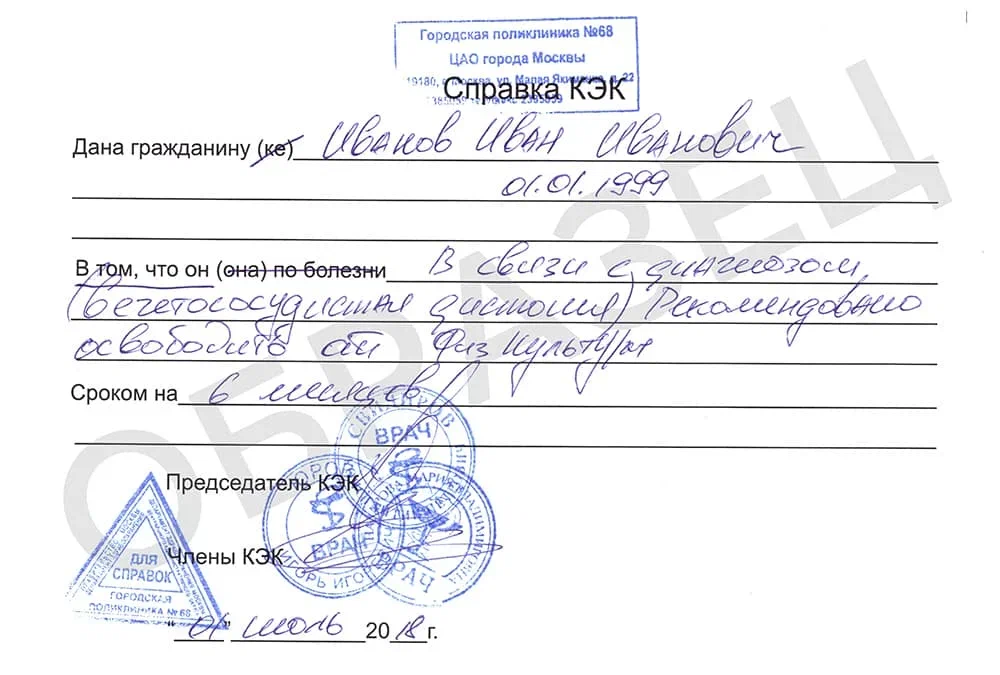 Городская поликлиника №68
ЦАО города Москвы
19180, г. Москва, ул. Малая Якиманка, д. 22
Справка КЭК
Дана гражданину (ке) Иванов Иван Иванович
01.01.1999
В том, что он (она) по болезни В связи с диагнозом
(вегетососудистая дистония) Рекомендовано
освободить от физкультуры
Сроком на 6 месяцев
ОБРАЗЕЦ
ВРАЧ
Председатель КЭК
ВРАЧ
Члены КЭК
ВРАЧ
ДЛЯ
СПРАВОК
ГОРОДСКАЯ
ПОЛИКЛИНИКА № 68
"01" июль 2018 г.